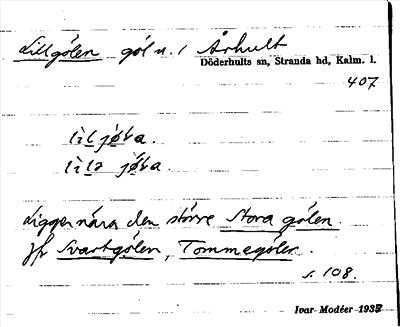 Lillgölen göl n. i Århult
Döderhults sn, Stranda hd, Kalm. l.
407
Ligger nära den större Stora gölen.
Jfr Svartgölen, Tommegölen.
s. 108.
Ivar Modéer 1933